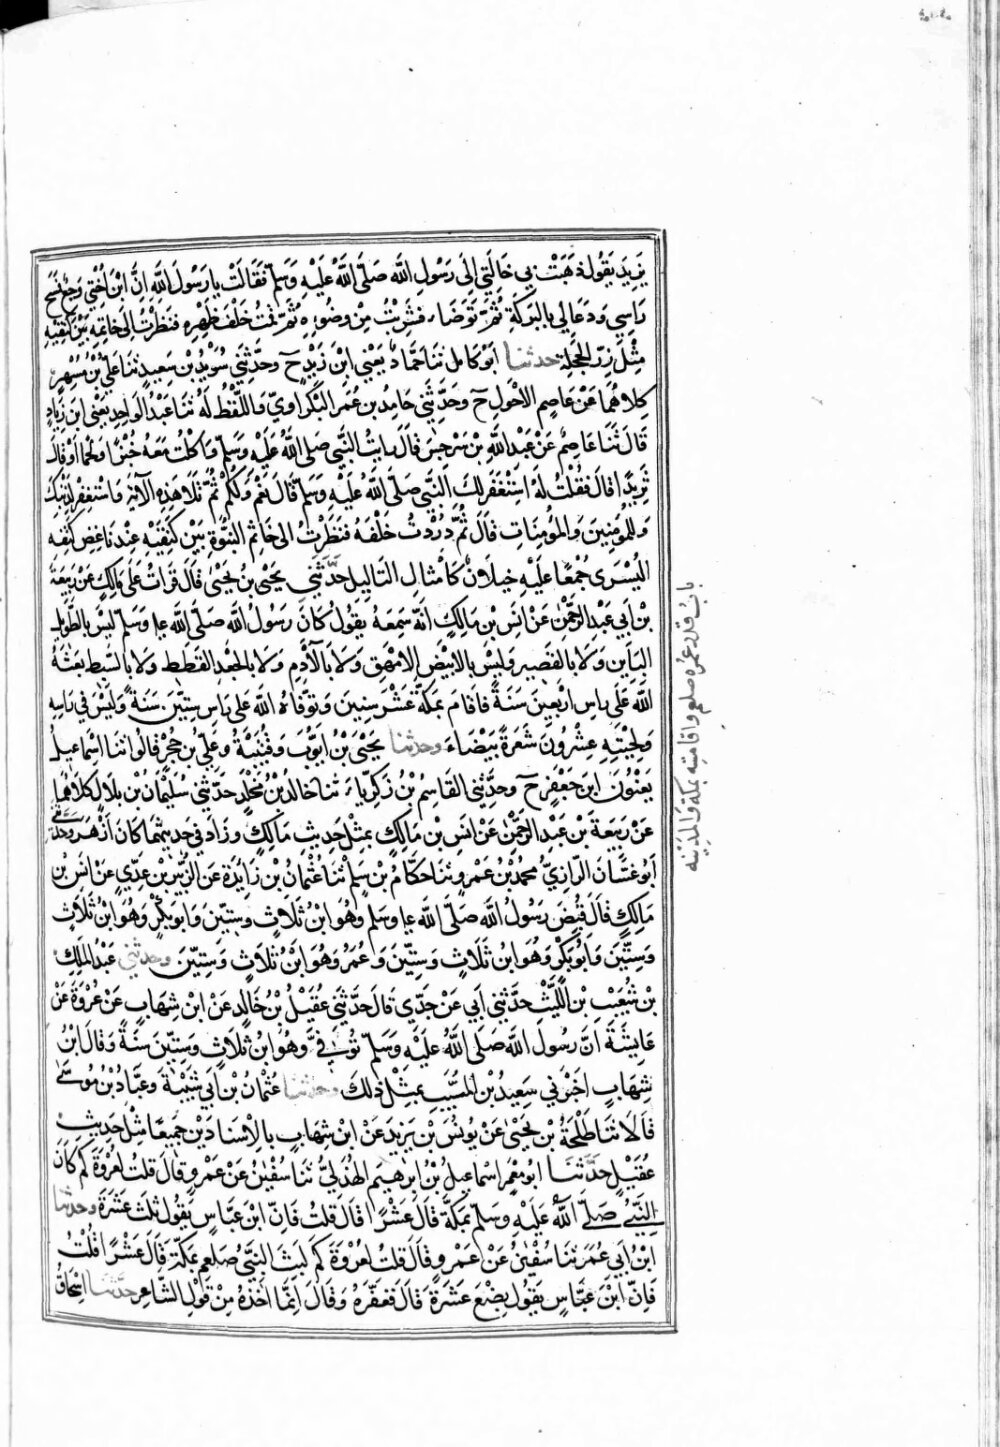 يَزِيدَ يَقُولُ ذَهَبَتْ بِي خَالَتِي إِلَى رَسُولِ اللَّهِ صَلَّى اللَّهُ عَلَيْهِ وَسَلَّمَ فَقَالَتْ يَا رَسُولَ اللَّهِ إِنَّ ابْنَ أُخْتِي وَجِعٌ فَمَسَحَ
رَاسِي وَدَعَا لِي بِالْبَرَكَةِ ثُمَّ تَوَضَّاءَ فَشَرِبْتُ مِنْ وَضُوءِهِ ثُمَّ قُمْتُ خَلْفَ ظَهْرِهِ فَنَظَرْتُ إِلَى خَاتِمِهِ بَيْنَ كَتِفَيْهِ
مِثْلَ زِرِّ الْحَجَلَةِ حدثنا أَبُو كَامِلٍ ثَنَا حَمَّادٌ يَعْنِي ابْنَ زَيْدٍ ح وَحَدَّثَنِي سُوَيْدُ بْنُ سَعِيدٍ ثَنَا عَلِيُّ بْنُ مُسْهِرٍ
كِلَاهُمَا عَنْ عَاصِمِ الْأَحْوَلِ ح وَحَدَّثَنِي حَامِدُ بْنُ عُمَرَ الْبَكْرَاوِيُّ وَاللَّفْظُ لَهُ ثَنَا عَبْدُ الْوَاحِدِ يَعْنِي ابْنَ زِيَادٍ
قَالَ ثَنَا عَاصِمٌ عَنْ عَبْدِ اللَّهِ بْنِ سَرْجِسَ قَالَ رَايْتُ النَّبِيَّ صَلَّى اللَّهُ عَلَيْهِ وَسَلَّمَ وَاكَلْتُ مَعَهُ خُبْزًا وَلَحْمًا أَوْ قَالَ
ثَرِيدًا قَالَ فَقُلْتُ لَهُ اسْتَغْفَرَ لَكَ النَّبِيُّ صَلَّى اللَّهُ عَلَيْهِ وَسَلَّمَ قَالَ نَعَمْ وَلَكُمْ ثُمَّ تَلَا هَذِهِ الْآيَةَ وَاسْتَغْفِرْ لِذَنْبِكَ
وَلِلْمُؤْمِنِينَ وَالْمُؤْمِنَاتِ قَالَ ثُمَّ دُرْتُ خَلْفَهُ فَنَظَرْتُ إِلَى خَاتَمِ النُّبُوَّةِ بَيْنَ كَتِفَيْهِ عِنْدَ نَاغِضِ كَتِفِهِ
الْيُسْرَى جُمْعًا عَلَيْهِ خِيلَانٌ كَأَمْثَالِ الثَّالِيلِ حَدَّثَنِي يَحْيَى بْنُ يَحْيَى قَالَ قَرَاتُ عَلَى مَالِكٍ عَنْ رَبِيعَةَ
بْنِ أَبِي عَبْدِ الرَّحْمٰنِ عَنْ أَنَسِ بْنِ مَالِكٍ أَنَّهُ سَمِعَهُ يَقُولُ كَانَ رَسُولُ اللَّهِ صَلَّى اللَّهُ عليه وَسَلَّمَ لَيْسَ بِالطَّوِيلِ
الْبَايِنِ وَلَا بِالْقَصِيرِ وَلَيْسَ بِالْأَبْيَضِ الْأَمْهَقِ وَلَا بِالْآدَمِ وَلَا بِالْجَعْدِ الْقَطَطِ وَلَا بِالسَّبِطِ بَعَثَهُ
اللَّهُ عَلَى رَاسِ أَرْبَعِينَ سَنَةً فَأَقَامَ بِمَكَّةَ عَشْرَ سِنِينَ وَتَوَفَّاهُ اللَّهُ عَلَى رَاسِ سِتِّينَ سَنَةً وَلَيْسَ فِي رَاسِهِ
وَلِحْيَتِهِ عِشْرُونَ شَعْرَةً بَيْضَاءَ وحدثنا يَحْيَى بْنُ أَيُّوبَ وَقُتَيْبَةُ وَعَلِيُّ بْنُ حُجْرٍ قَالُوا ثَنَا إِسْمَاعِيلُ
يَعْنُونَ ابْنَ جَعْفَرٍ ح وَحَدَّثَنِي الْقَاسِمُ بْنُ زَكَرِيَّاءَ ثَنَا خَالِدُ بْنُ مَخْلَدٍ حَدَّثَنِي سُلَيْمَانُ بْنُ بِلَالٍ كِلَاهُمَا
عَنْ رَبِيعَةَ بْنِ عَبْدِ الرَّحْمٰنِ عَنْ أَنَسِ بْنِ مَالِكٍ بِمِثْلِ حَدِيثِ مَالِكٍ وَزَادَ فِي حَدِيثِهِمَا كَانَ أَزْهَرَ وَحَدَّثَنِي
أَبُو غَسَّانَ الرَّازِيُّ مُحَمَّدُ بْنُ عَمْرٍو ثَنَا حَكَّامُ بْنُ سَلْمٍ ثَنَا عُثْمَانُ بْنُ زَايِدَةَ عَنِ الزُّبَيْرِ بْنِ عَدِيٍّ عَنْ أَنَسِ بْنِ
مَالِكٍ قَالَ قُبِضَ رَسُولُ اللَّهِ صَلَّى اللَّهُ عليه وسلم وَهُوَ ابْنُ ثَلَاثٍ وَسِتِّينَ وَأَبُو بَكْرٍ وَهُوَ ابْنُ ثَلَاثٍ
وَسِتِّينَ وَأَبُو بَكْرٍ وَهُوَ ابْنُ ثَلَاثٍ وَسِتِّينَ وَعُمَرُ وَهُوَ ابْنُ ثَلَاثٍ وَسِتِّينَ وحدثني عَبْدُ الْمَلِكِ
بْنُ شُعَيْبِ بْنِ اللَّيْثِ حَدَّثَنِي أَبِي عَنْ جَدِّي قَالَ حَدَّثَنِي عُقَيْلُ بْنُ خَالِدٍ عَنِ ابْنِ شِهَابٍ عَنْ عُرْوَةَ عَنْ
عَايِشَةَ أَنَّ رَسُولَ اللَّهِ صَلَّى اللَّهُ عَلَيْهِ وَسَلَّمَ تُوُفِّيَ وَهُوَ ابْنُ ثَلَاثٍ وَسِتِّينَ سَنَةً وَقَالَ ابْنُ
شِهَابٍ أَخْبَرَنِي سَعِيدُ بْنُ الْمُسَيَّبِ بِمِثْلِ ذَلِكَ وحدثنا عُثْمَانُ بْنُ أَبِي شَيْبَةَ وَعَبَّادُ بْنُ مُوسَى
قَالَا ثَنَا طَلْحَةُ بْنُ يَحْيَى عَنْ يُونُسَ بْنِ يَزِيدَ عَنِ ابْنِ شِهَابٍ بِالْإِسْنَادَيْنِ جَمِيعًا مِثْلَ حَدِيثِ
عُقَيْلٍ حَدَّثَنَا أَبُو مَعْمَرٍ إِسْمَاعِيلُ بْنُ إِبْرَاهِيمَ الْهُذَلِيُّ ثَنَا سُفْيٰنُ عَنْ عَمْرٍو قَالَ قُلْتُ لِعُرْوَةَ كَمْ كَانَ
النَّبِيُّ صَلَّى اللَّهُ عَلَيْهِ وَسَلَّمَ بِمَكَّةَ قَالَ عَشْرًا قَالَ قُلْتُ فَإِنَّ ابْنَ عَبَّاسٍ يَقُولُ ثَلٰثَ عَشْرَةَ وحدثنا
ابْنُ أَبِي عُمَرَ ثَنَا سُفْيٰنُ عَنْ عَمْرٍو قَالَ قُلْتُ لِعُرْوَةَ كَمْ لَبِثَ النَّبِيُّ صلعم بِمَكَّةَ قَالَ عَشْرًا قُلْتُ
فَإِنَّ ابْنَ عَبَّاسٍ يَقُولُ بِضْعَ عَشْرَةَ قَالَ فَغَفَّرَهُ وَقَالَ إِنَّمَا أَخَذَهُ مِنْ قَوْلِ الشَّاعِرِ حَدَّثَنَا إِسْحَاقُ
باب قدر عمره صلعم واقامته بمكة والمدينه